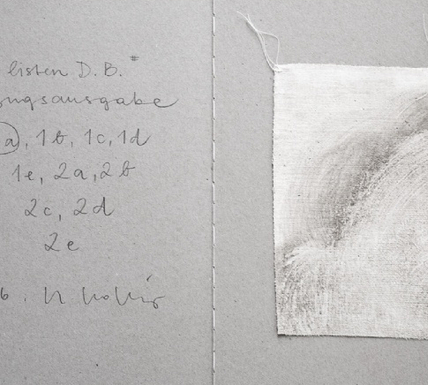 listen D. B."
ngsausgabe
a, 1b, 1c, 1d
1e, 2a, 2b
2c, 2d
2e